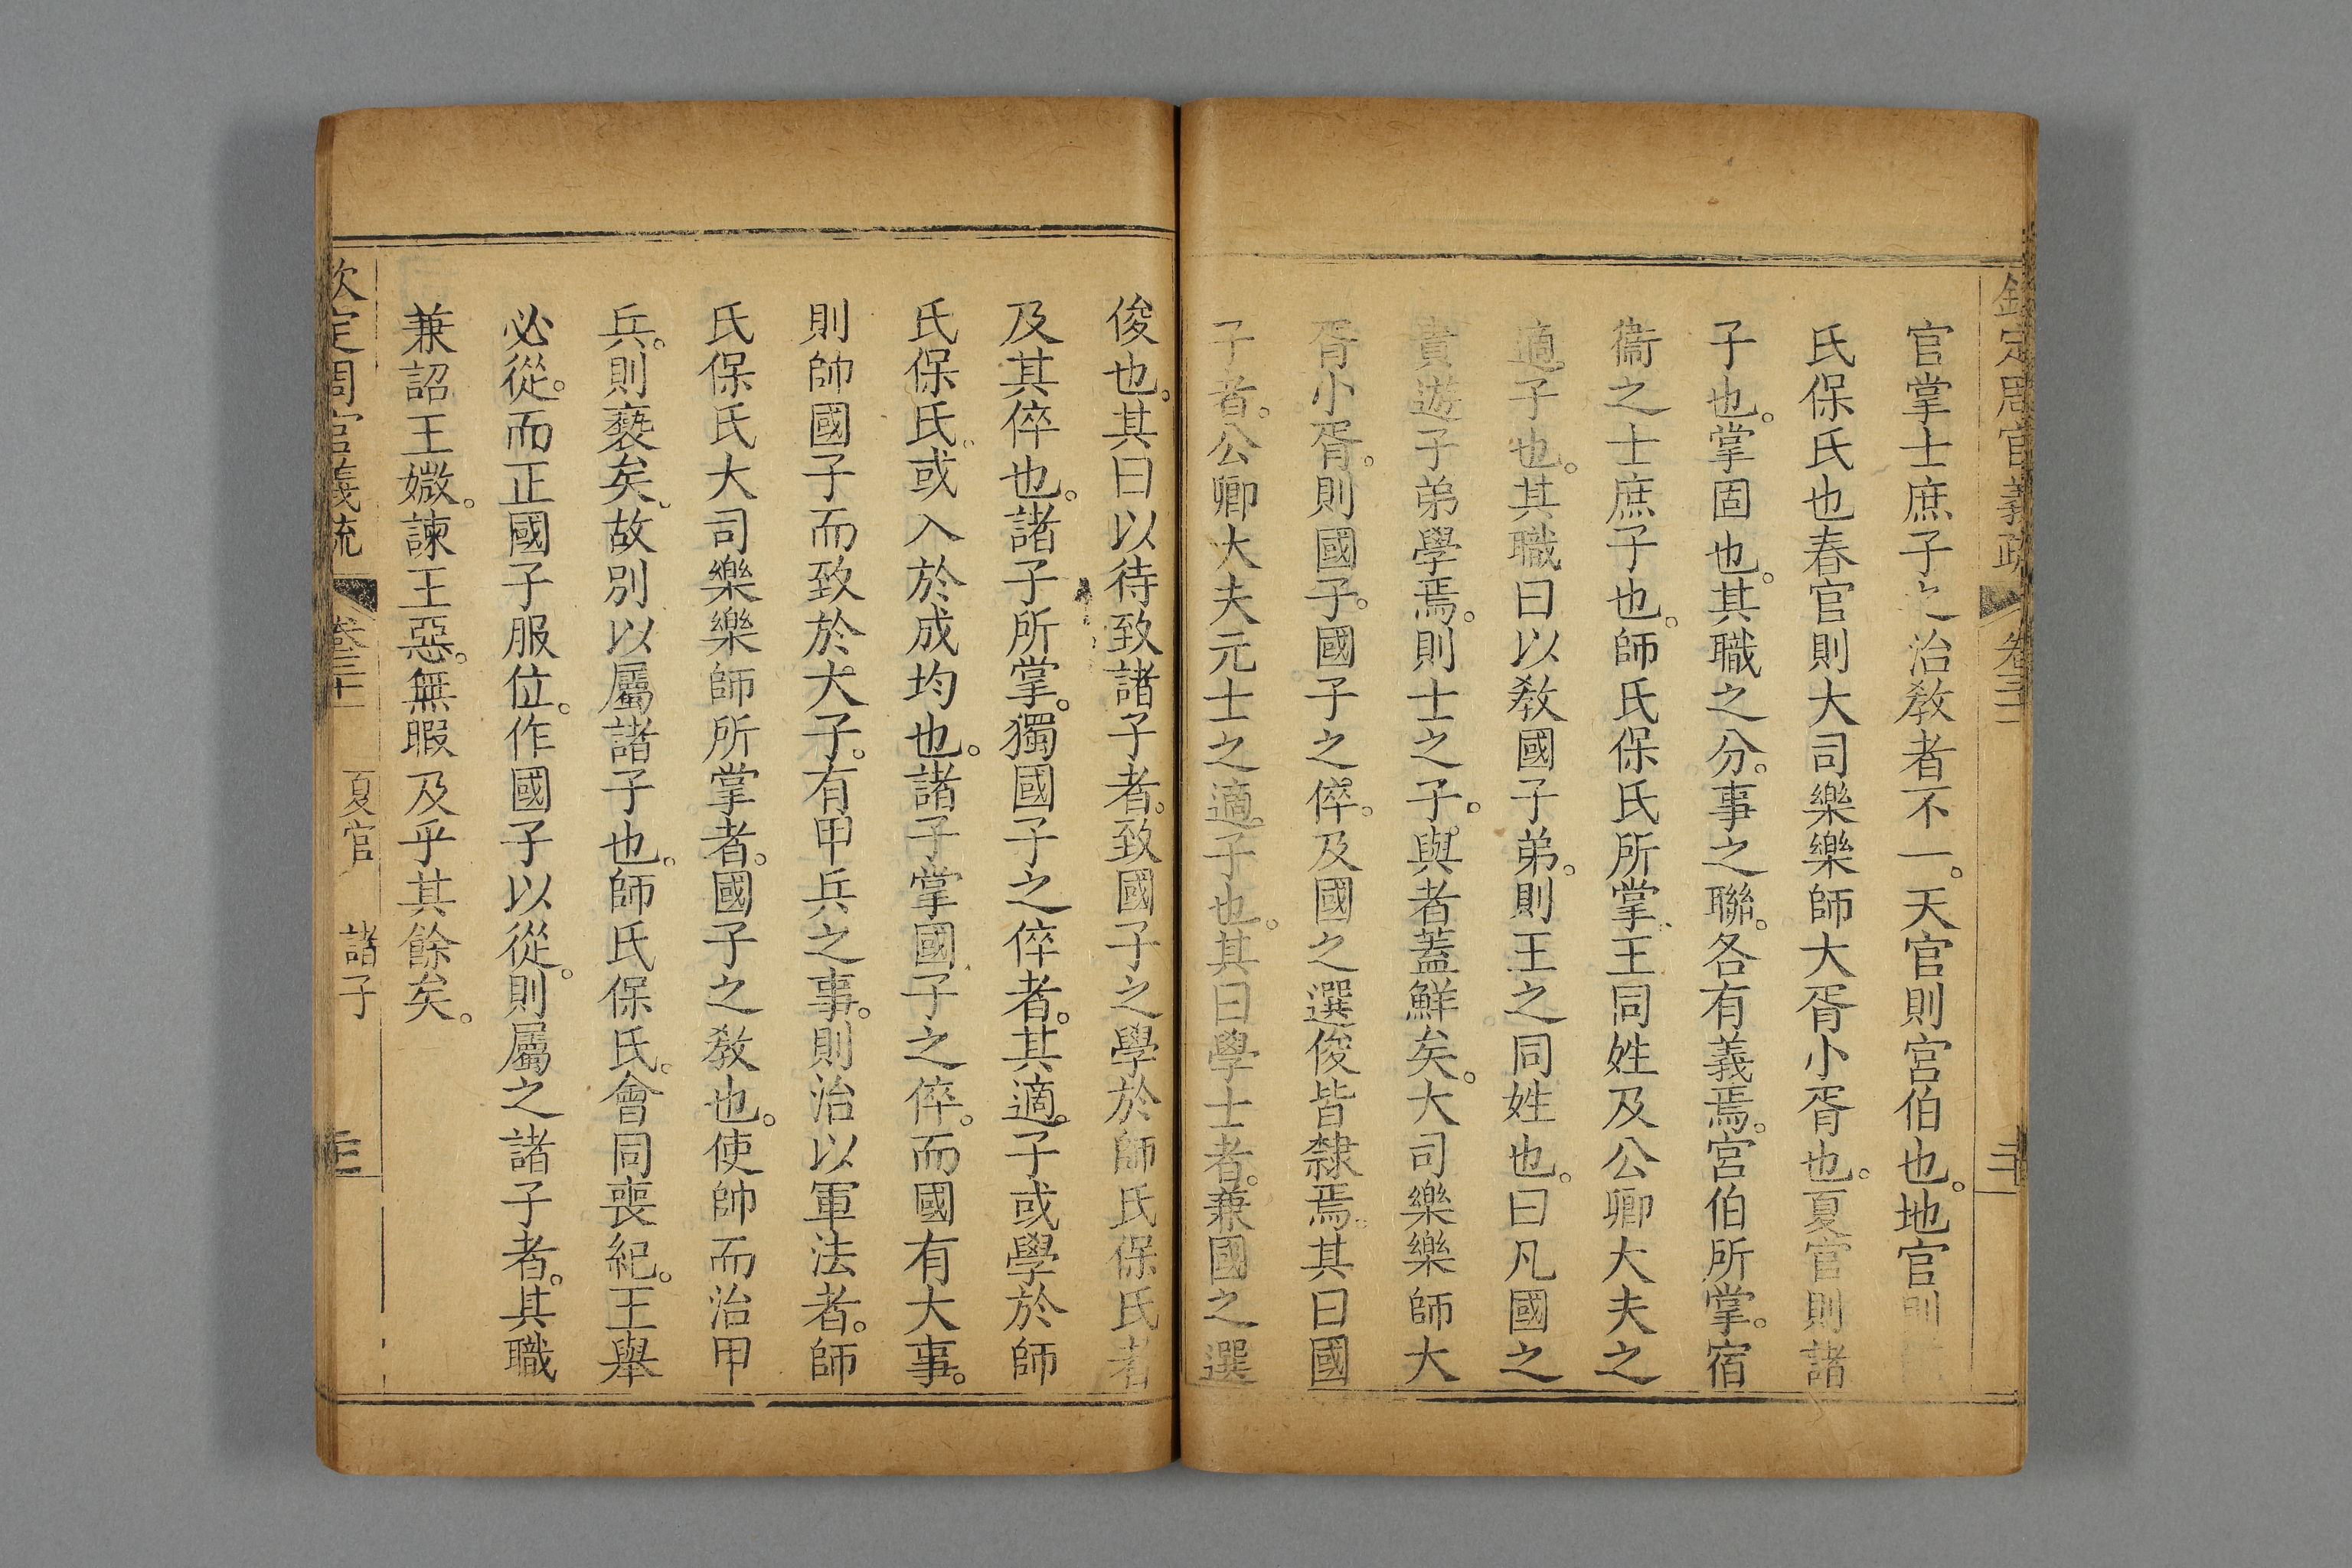 欽定周官義疏 卷三十一
官掌士庶子之治教者不一。天官則宮伯也。地官則
氏保氏也春官則大司樂樂師大胥小胥也。夏官則諸
子也。掌固也。其職之分。事之聯。各有義焉。宮伯所掌。宿
衞之士庶子也。師氏保氏所掌。王同姓及公卿大夫之
適子也。其職曰以教國子弟。則王之同姓也。曰凡國之
貴遊子弟學焉。則士之子。與者蓋鮮矣。大司樂樂師大
胥小胥。則國子。國子之倅。及國之選俊皆隸焉。其曰國
子者。公卿大夫元士之適子也。其曰學士者。兼國之選
俊也。其曰以待致諸子者。致國子之學於師氏保氏者
及其倅也。諸子所掌。獨國子之倅者。其適子或學於師
氏保氏。或入於成均也。諸子掌國子之倅。而國有大事。
則帥國子而致於大子。有甲兵之事。則治以軍法者。師
氏保氏大司樂樂師所掌者。國子之教也。使帥而治甲
兵。則褻矣。故別以屬諸子也。師氏保氏。會同喪紀。王舉
必從。而正國子服位。作國子以從。則屬之諸子者。其職
兼詔王媺。諫王惡。無暇及乎其餘矣。
欽定周官義疏 卷三十一 夏官 諸子